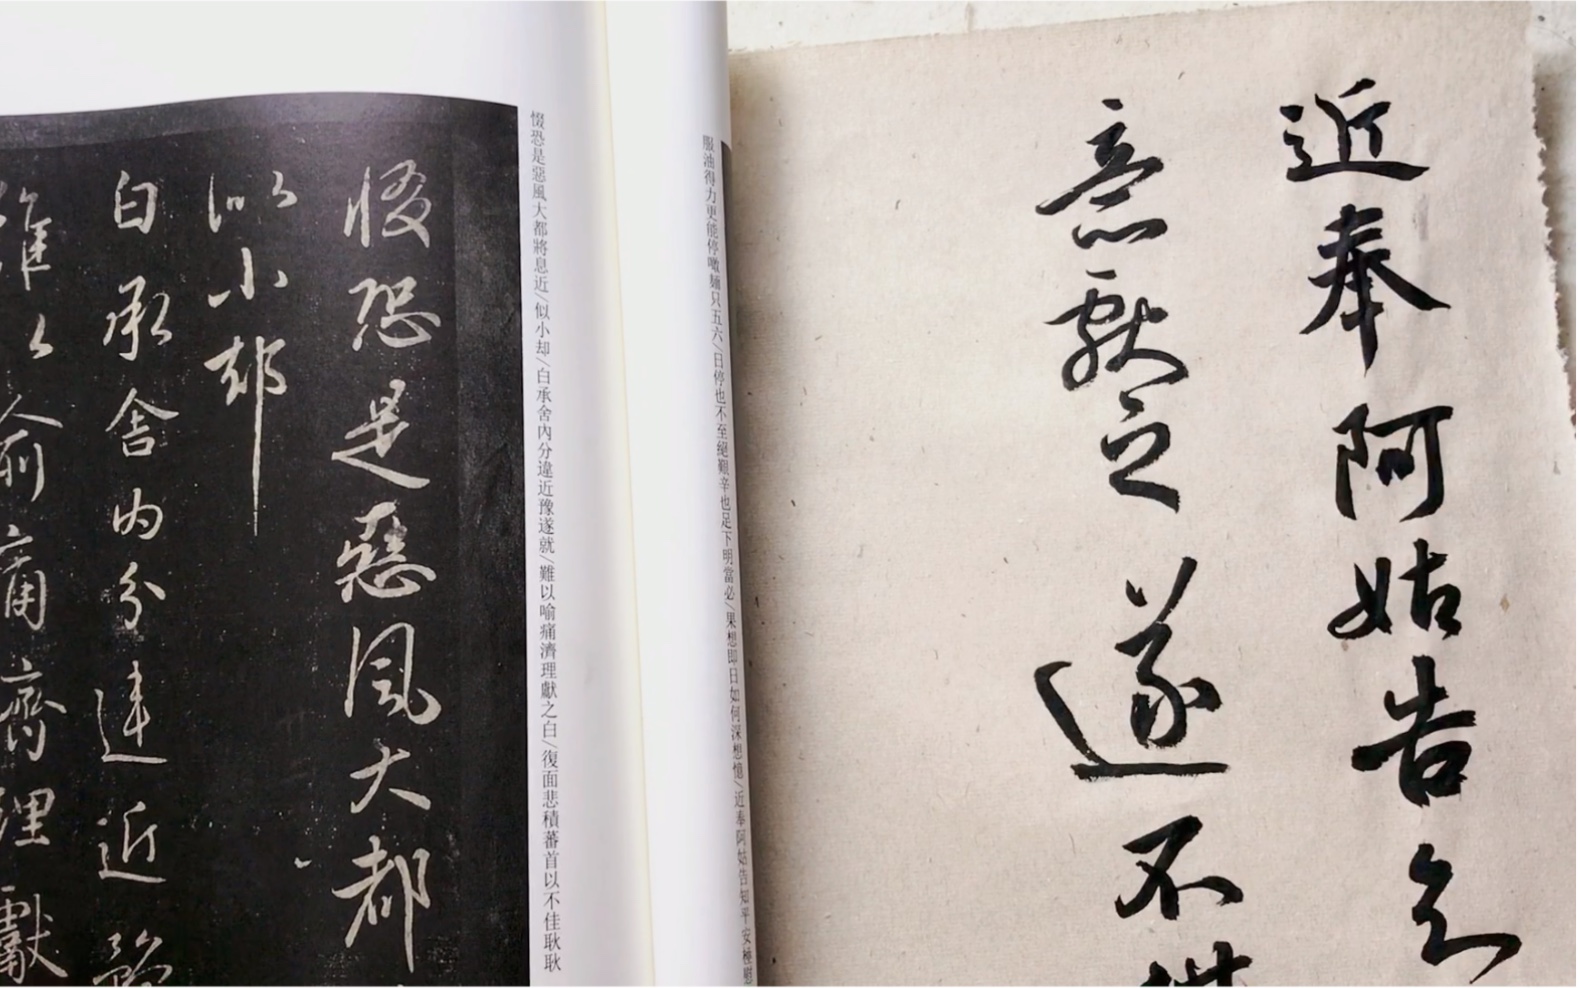 近奉阿姑告知
意獻之遂不
服油得力更能停噉麵只五六/日停也不至絕艱辛也足下明當必/果想即日如何深想憶/近奉阿姑告知平安極慰
惙恐是惡風大都將息近/似小却/白承舍內分違近豫遂就/難以喻痛濟理獻之白/復面悲積蕃首以不佳耿耿
惙恐是惡風大都
似小却
白承舍內分違近豫
難以喻痛濟理獻